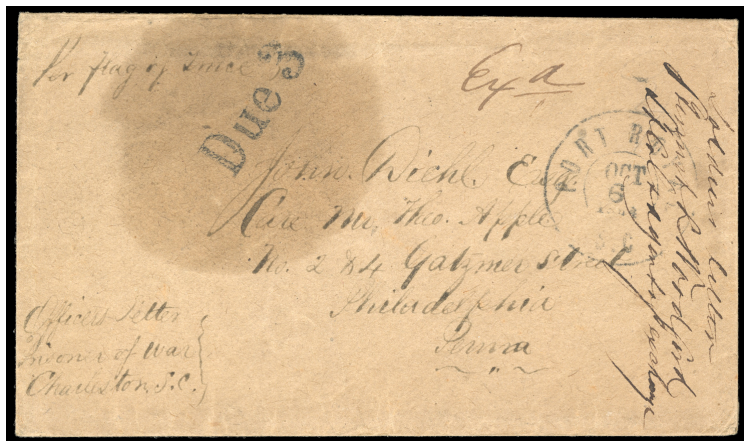 Per flag of Truce
Due 3
Exa
PORT R
OCT
John Diehl Esq.
Care Mr. Theo. Apple
No. 2 & 4 Gatzmer Street
Philadelphia
Penna
Officers Letter
Prisoner of War
Charleston, S.C.
Soldiers letter